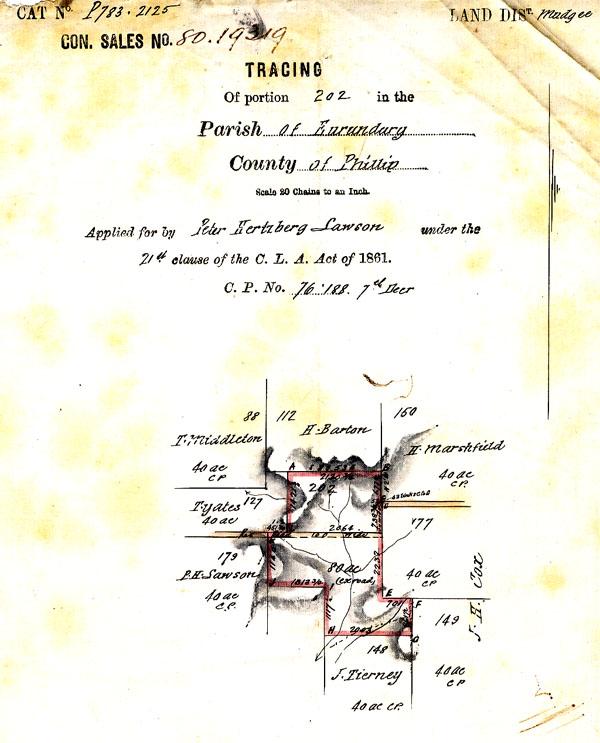 CAT No. P783.2125
LAND DIST. Mudgee
CON. SALES NO. 80.19319
TRACING
Of portion 202 in the
Parish of Eurundury
County of Phillip
Scale 20 Chains to an Inch.
Applied for by Peter Hertzberg Lawson under the
21st clause of the C. L. A. Act of 1861.
C. P. No. 76.188. 7th Decr
88
112
160
H. Barton
T. Middleton
H. Marshfield
40 ac
C.P.
40 ac
C.P.
A
202
127
T. Yates
40 ac
2064
177
179
80 ac
(ex road)
2250
P.H. Lawson
40 ac
C.P.
40 ac
C.P.
E
701
F
149
J. H. Cox
H
2003
G
148
J. Tierney
40 ac
C.P.
40 ac C.P.